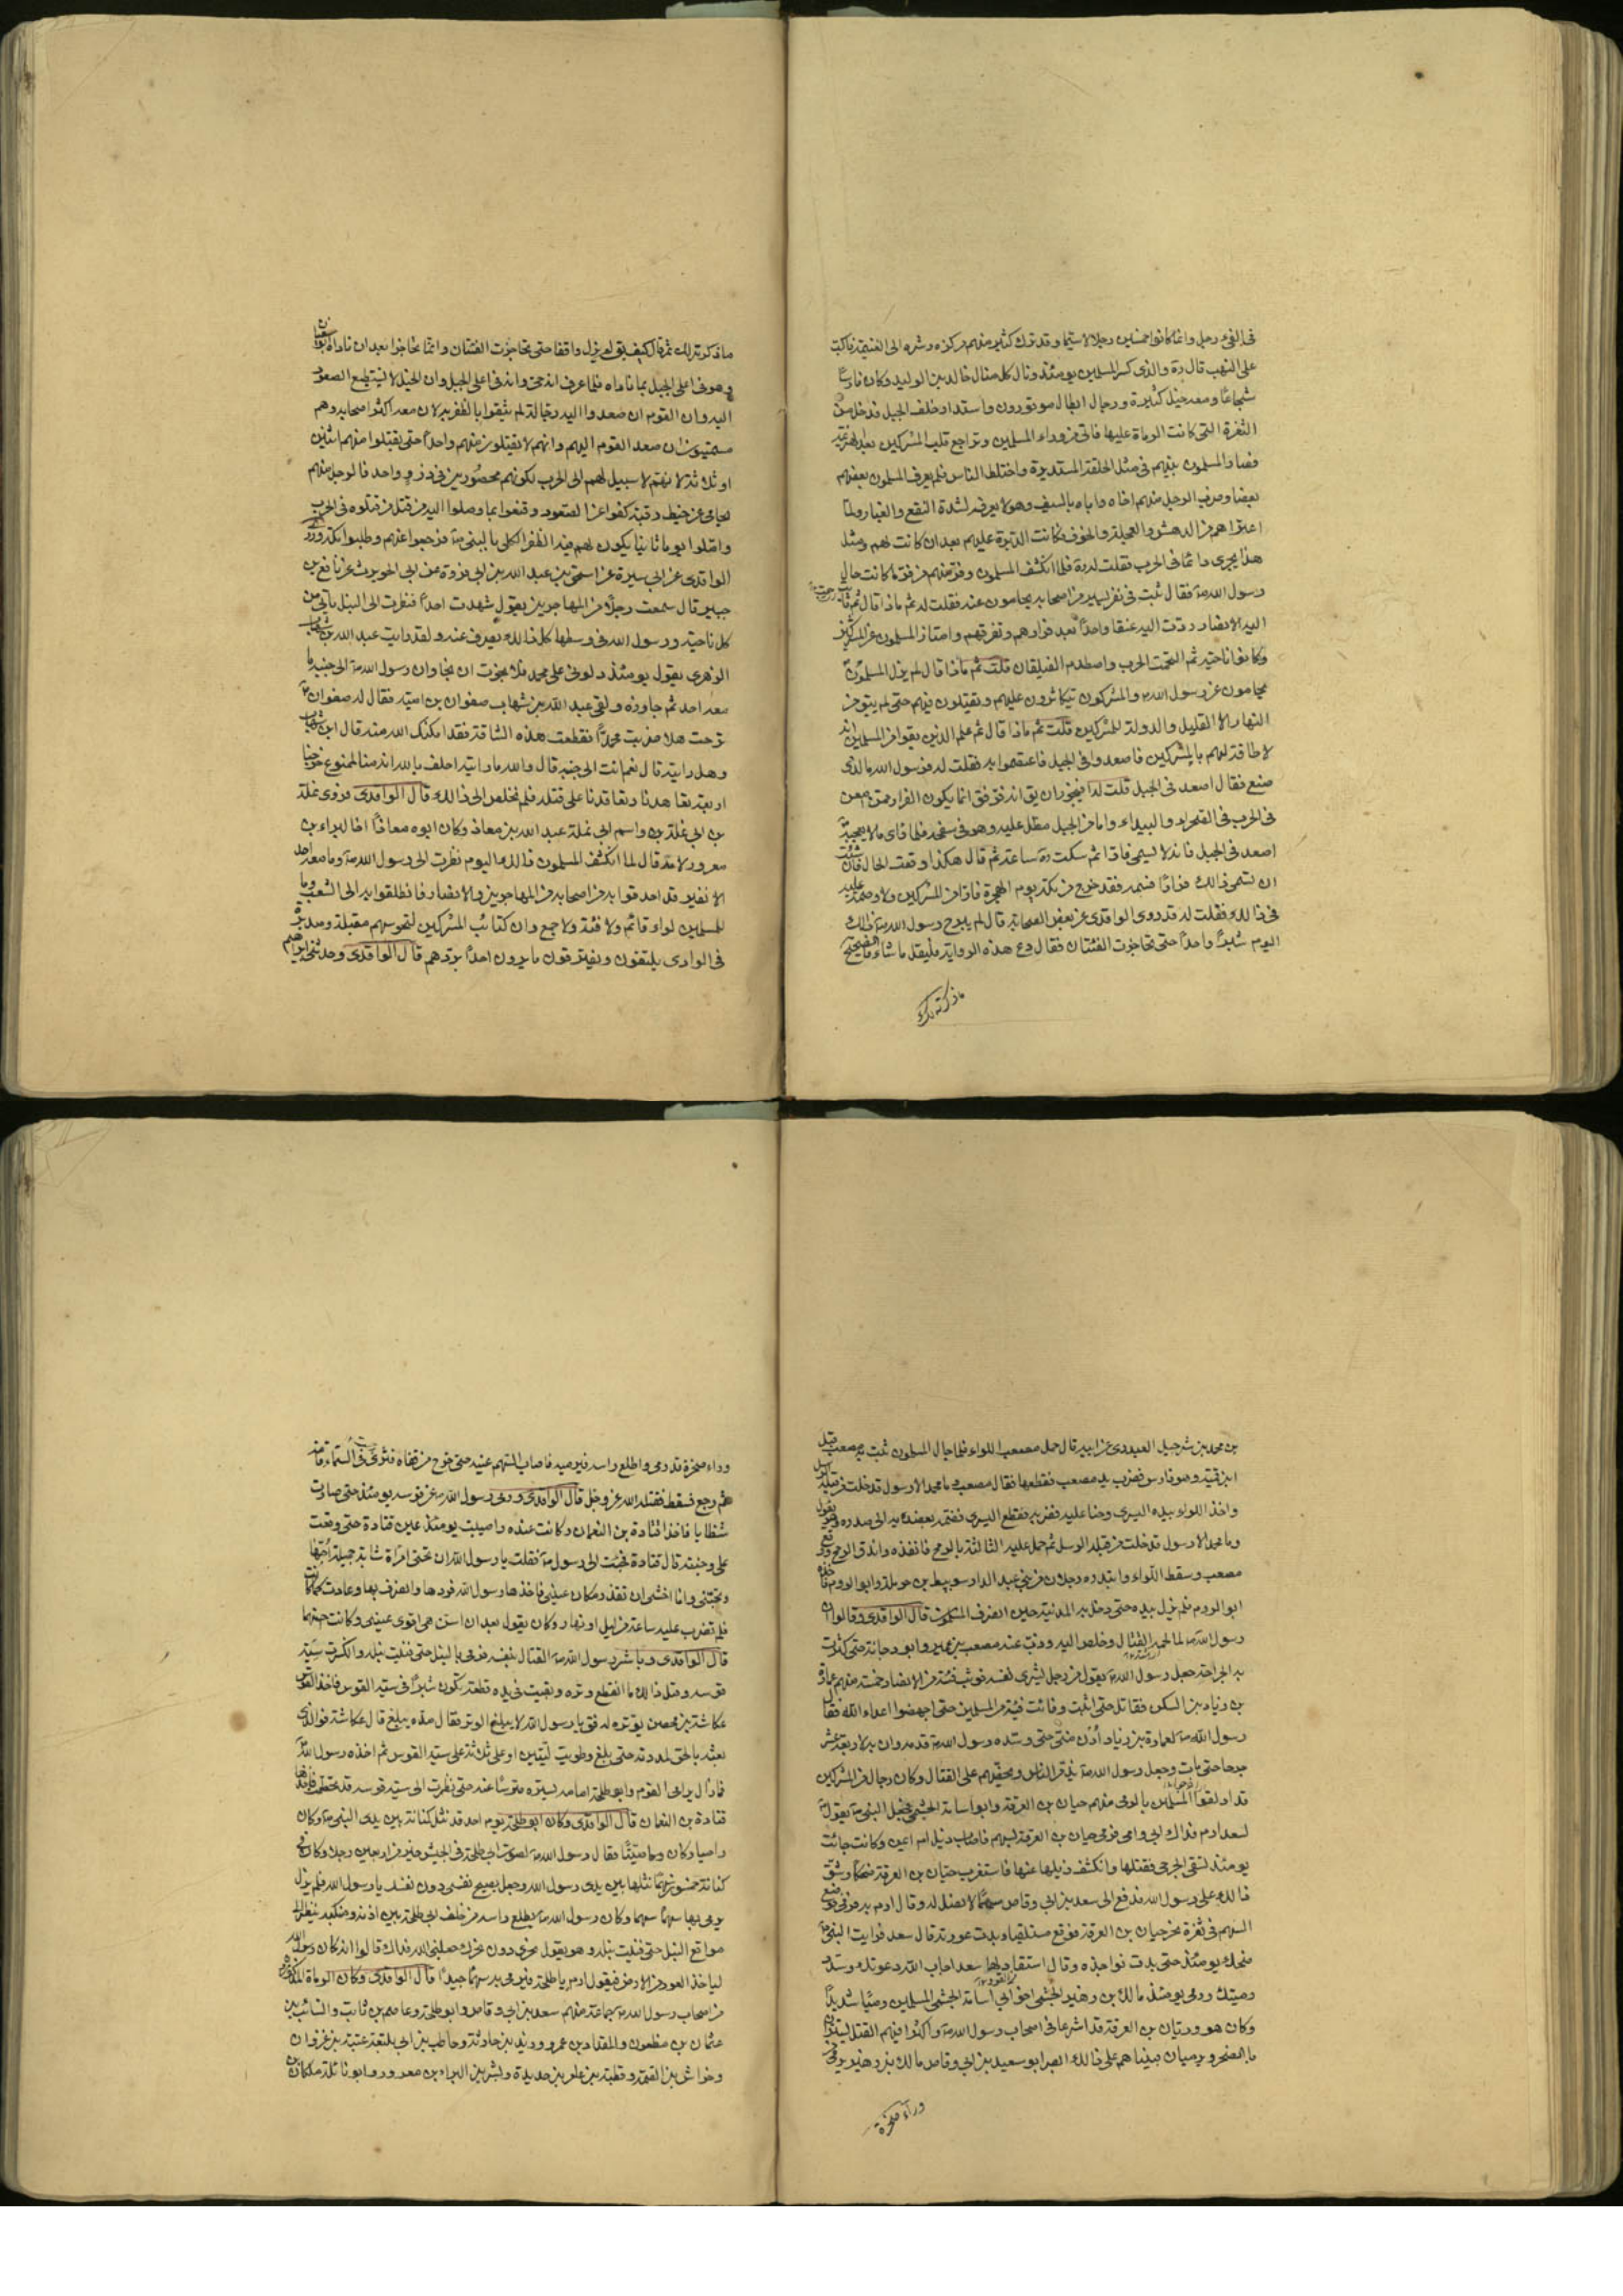 في الفئ رجل وانما كانوا خمسين رجلا لا سيما وقد ترك كثير منهم مركزه وشره الى الغنيمة فاكب
على النهب قال ره والذى كسر المسلمين يومئذ ونال كل منال خالد بن الوليد وكان فارسا
شجاعا ومعه خيل كثيرة ورجال ابطال موتورون واستدار خلف الجبل فدخل من
الثغرة التى كانت الرماة عليها فاتى من وراء المسلمين وتراجع قلب المشركين بعد الهزيمة
فصار المسلمون بينهم فى مثل الحلقة المستديرة واختلط الناس فلم يعرف المسلمون بعضهم
بعضا وضرب الرجل منهم اخاه واباه بالسيف وهو لا يعرفه لشدة النقع والغبار ولما
اعتراهم من الدهش والعجلة والخوف فكانت الدبرة عليهم بعد ان كانت لهم ومثل
هذا يجرى دائما فى الحرب فقلت له ره فلما انكشف المسلمون وفر منهم من فر ما كانت حال
رسول الله ص فقال ثبت فى نفر يسير من اصحابه يحامون عنه فقلت له ثم ماذا قال ثم ثابت
اليه الانصار وردت اليه عنقا واحدا بعد فرارهم وتفرقهم وامتاز المسلمون عن المشركين
وكانوا ناحية ثم التحمت الحرب واصطدم الفيلقان قلت ثم ماذا قال لم يزل المسلمون
يحامون عن رسول الله ص والمشركون يتكاثرون عليهم ويقتلون فيهم حتى لم يبق من
النهار الا القليل والدولة للمشركين قلت ثم ماذا قال ثم علم الذين بقوا من المسلمين انه
لا طاقة لهم بالمشركين فاصعدوا فى الجبل فاعتصموا به فقلت له فرسول الله ما الذى
صنع فقال اصعد فى الجبل قلت له افيجوز ان يق انه فر فق انما يكون الفرار ممن امعن
فى الحرب فى الصحراء والبيداء واما من الجبل مطل عليه وهو فى سفحه فلما راى ما لا يعجبه
اصعد فى الجبل فانه لا يسمى فارا ثم سكت ره ساعة ثم قال هكذا وقعت الحال فان شئت
ان تسمى ذالك فرارا فسمه فقد خرج من مكة يوم الهجرة فارا من المشركين ولا وصمة عليه
فى ذالك فقلت له قد روى الواقدى عن بعض الصحابة قال لم يبرح رسول الله ص ذالك
اليوم شبرا واحدا حتى تحاجزت الفئتان فقال دع هذه الرواية فليقل ما شاء فالصحيح
ما ذكرته لك
ما ذكرته لك ثم قال كيف يق لم يزل واقفا حتى تحاجزت الفئتان وانما تحاجزا بعد ان ناداه ابو سفيان
وهو فى اعلى الجبل بما ناداه فلما عرف انه حي وانه فى اعلى الجبل وان الخيل لا تستطيع الصعود
اليه وان القوم ان صعدوا اليه رجالة لم يثقوا بالظفر به لان معه اكثر اصحابه وهم
مستميتون ان صعد القوم اليهم وانهم لا يقتلون منهم واحدا حتى يقتلوا منهم اثنين
او ثلاثة لانهم لا سبيل لهم الى الهرب لكونهم محصورين فى ذرو واحد فالرجل منهم
يحامى عن خيط رقبته كفوا عن الصعود وقنعوا بما وصلوا اليه من قتل من قتلوه فى الحرب
واملوا يوما ثانيا يكون لهم فيه الظفر الكلى بالنبى ص فرجعوا عنهم وطلبوا مكة وروى
الواقدى عن ابى سبرة عن اسحق بن عبد الله بن ابى فروة عن ابى الحويرث عن نافع بن
جبير قال سمعت رجلا من المهاجرين يقول شهدت احدا فنظرت الى النبل يأتى من
كل ناحية ورسول الله فى وسطها كل ذالك يصرف عنه ولقد رايت عبد الله بن شهاب
الزهرى يقول يومئذ دلونى على محمد فلا نجوت ان نجا وان رسول الله ص الى جنبه ما
معه احد ثم جاوزه ولقى عبد الله بن شهاب صفوان بن امية فقال له صفوان
ترحت هلا ضربت محمدا فقطعت هذه الشافة فقد امكنك الله منه قال ابن شهاب
وهل رايته قال نعم انت الى جنبه قال والله ما رايته احلف بالله انه منا لممنوع خرجنا
اربعة تعاهدنا وتعاقدنا على قتله فلم نخلص الى ذالك قال الواقدى فروى نملة
بن ابى نملة بن واسم ابى نملة عبد الله بن معاذ وكان ابوه معاذ اخا لبراء بن
معرور لامه قال لما انكشف المسلمون ذالك اليوم نظرت الى رسول الله ص وما معه احد
الا نفير قد احدقوا به من اصحابه من المهاجرين والانصار فانطلقوا به الى الشعب وما
للمسلمين لواء قائم ولا فئة ولا جمع وان كتائب المشركين لتحوسهم مقبلة ومدبرة
فى الوادى يلتقون ويفترقون ما يرون احدا يردهم قال الواقدى وحدثنى ابراهيم
بن محمد بن شرحبيل العبدرى عن ابيه قال حمل مصعب اللواء فلما جال المسلمون ثبت به مصعب قبل
ابن قميئة وهو فارس فضرب يد مصعب فقطعها فقال مصعب وما محمد الا رسول قد خلت من قبله الرسل
واخذ اللواء بيده اليسرى وحنا عليه فضربه فقطع اليسرى فضمه بعضديه الى صدره وهو يقول
وما محمد الا رسول قد خلت من قبله الرسل ثم حمل عليه الثالثة بالرمح فانفذه واندق الرمح ووقع
مصعب وسقط اللواء وابتدره رجلان من بنى عبد الدار سويبط بن حرملة وابو الروم فاخذه
ابو الروم فلم يزل بيده حتى دخل به المدنية حين انصرف المسلمون قال الواقدى وقالوا ان
رسول الله ص لما لحمه القتال وخلص اليه وذب عنه مصعب بن عمير وابو دجانة حتى كثرت
به الجراحة جعل رسول الله ص يقول من رجل يشرى نفسه فوثب فئة من الانصار خمسة منهم عمارة
بن زياد بن السكن فقاتل حتى اثبت وفائت فئة من المسلمين حتى اجهضوا اعداء الله فقال
رسول الله ص لعمارة بن زياد أدن منى حتى وسده رسول الله ص قدمه وان به لاربعة عشر
جرحا حتى مات وجعل رسول الله ص يذمر الناس ويحضهم على القتال وكان رجال من المشركين
قد اذلقوا المسلمين بالرمى منهم حيان بن العرقة وابو اسامة الجشمى فجعل النبى ص يقول
لسعد ارم فداك ابى وامى فرمى حيان بن العرقة بسهم فاصاب ذيل ام ايمن وكانت جائت
يومئذ تسقى الجرحى فقتلها وانكشف ذيلها عنها فاستغرب حيان بن العرقة ضحكا وشق
ذالك على رسول الله فدفع الى سعد بن ابى وقاص سهما لا نصل له وقال ارم به فرمى فوقع
السهم فى ثغرة نحر حيان بن العرقة فوقع مستلقيا وبدت عورته قال سعد فرايت النبى ص
ضحك يومئذ حتى بدت نواجذه وقال استقاد لها سعد اجاب الله دعوتك وسدد
رميتك ورمى يومئذ مالك بن زهير الجشمى اخو ابى اسامة الجشمى المسلمين رميا شديدا
وكان هو وريان بن العرقة قد اسرعا فى اصحاب رسول الله ص واكثرا فيهم القتل يستتران
بالصخر ويرميان فبينا هم على ذالك ابصر ابو سعيد بن ابى وقاص مالك بن زهير يرمى
وراء صخرة
وراء صخرة قد رمى واطلع راسه فيرميه فاصاب السهم عينه حتى خرج من قفاه فنزى فى السماء قامة
ثم رجع فسقط فقتله الله عز وجل قال الواقدى ورمى رسول الله ص عن قوسه يومئذ حتى صارت
شظايا فاخذها قتادة بن النعمان وكانت عنده واصيبت يومئذ عين قتادة حتى وقعت
على وجنته قال قتادة فجئت الى رسول ص فقلت يا رسول الله ان تحتى امراة شابة جميلة احبها
وتحبنى وانا اخشى ان تقذر مكان عينى فاخذها رسول الله فردها وانصرف بها وعادت كما كانت
فلم تضرب عليه ساعة من ليل او نهار وكان يقول بعد ان اسن هى اقوى عينى وكانت احسنهما
قال الواقدى وباشر رسول الله ص القتال بنفسه فرمى بالنبل حتى فنيت نبله وانكسرت سية
قوسه وقبل ذالك ما انقطع وتره وبقيت فى يده قطعة تكون شبرا فى سية القوس فاخذ القوس
عكاشة بن محصن يوتره له فق يا رسول الله لا يبلغ الوتر فقال مده يبلغ قال عكاشة فوالذى
بعثه بالحق لمددته حتى بلغ وطويت ليتين او على ثلاثة على سية القوس ثم اخذه رسول الله
فما زال يرامى القوم وابو طلحة امامه يستره متترسا عنه حتى نظرت الى سية قوسه قد تحطمت فاخذها
قتادة بن النعمان قال الواقدى وكان ابو طلحة يوم احد قد نثل كنانته بين يدى النبى ص وكان
راميا وكان صيتا فقال رسول الله ص لصوت ابى طلحة فى الجيش خير من اربعين رجلا وكان فى
كنانته خمسون سهما نثلها بين يدى رسول الله وجعل يصيح نفسى دون نفسك يا رسول الله فلم يزل
يرمى بها سهما سهما وكان رسول الله ص يطلع راسه من خلف ابى طلحة بين اذنه ومنكبه ينظر الى
مواقع النبل حتى فنيت نبله وهو يقول نحرى دون نحرك جعلنى الله فداك قالوا انه كان رسول الله
لياخذ العود من الارض فيقول ارم يا طلحة فيرمى به سهما جيدا قال الواقدى وكان الرماة المذكورون
من اصحاب رسول الله ص جماعة منهم سعد بن ابى وقاص وابو طلحة وعاصم بن ثابت والسائب بن
عثمان بن مظعون والمقداد بن عمرو وزيد بن حارثة وحاطب بن ابى بلتعة وعتبة بن غزوان
وخراش بن الصمة وقطبة بن عامر بن حديدة وبشر بن البراء بن معرور وابو نائلة ملكان بن